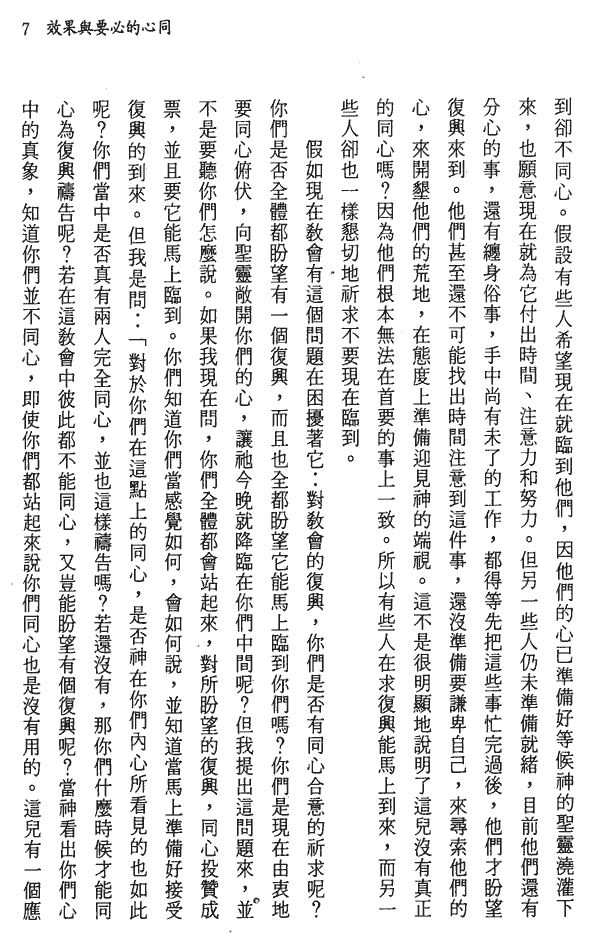 7 效果與要必的心同
到卻不同心。假設有些人希望現在就臨到他們，因他們的心已準備好等候神的聖靈澆灌下
來，也願意現在就為它付出時間、注意力和努力。但另一些人仍未準備就緒，目前他們還有
分心的事，還有纏身俗事，手中尚有未了的工作，都得等先把這些事忙完過後，他們才盼望
復興來到。他們甚至還不可能找出時間注意到這件事，還沒準備要謙卑自己，來尋索他們的
心，來開墾他們的荒地，在態度上準備迎見神的端視。這不是很明顯地說明了這兒沒有真正
的同心嗎？因為他們根本無法在首要的事上一致。所以有些人在求復興能馬上到來，而另一
些人卻也一樣懇切地祈求不要現在臨到。
假如現在教會有這個問題在困擾著它：對教會的復興，你們是否有同心合意的祈求呢？
你們是否全體都盼望有一個復興，而且也全都盼望它能馬上臨到你們嗎？你們是現在由衷地
要同心俯伏，向聖靈敞開你們的心，讓祂今晚就降臨在你們中間呢？但我提出這問題來，並
不是要聽你們怎麼說。如果我現在問，你們全體都會站起來，對所盼望的復興，同心投贊成
票，並且要它能馬上臨到。你們知道你們當感覺如何，會如何說，並知道當馬上準備好接受
復興的到來。但我是問：「對於你們在這點上的同心，是否神在你們內心所看見的也如此
呢？你們當中是否真有兩人完全同心，並也這樣禱告嗎？若還沒有，那你們什麼時候才能同
心為復興禱告呢？若在這教會中彼此都不能同心，又豈能盼望有個復興呢？當神看出你們心
中的真象，知道你們並不同心，即使你們都站起來說你們同心也是沒有用的。這兒有一個應